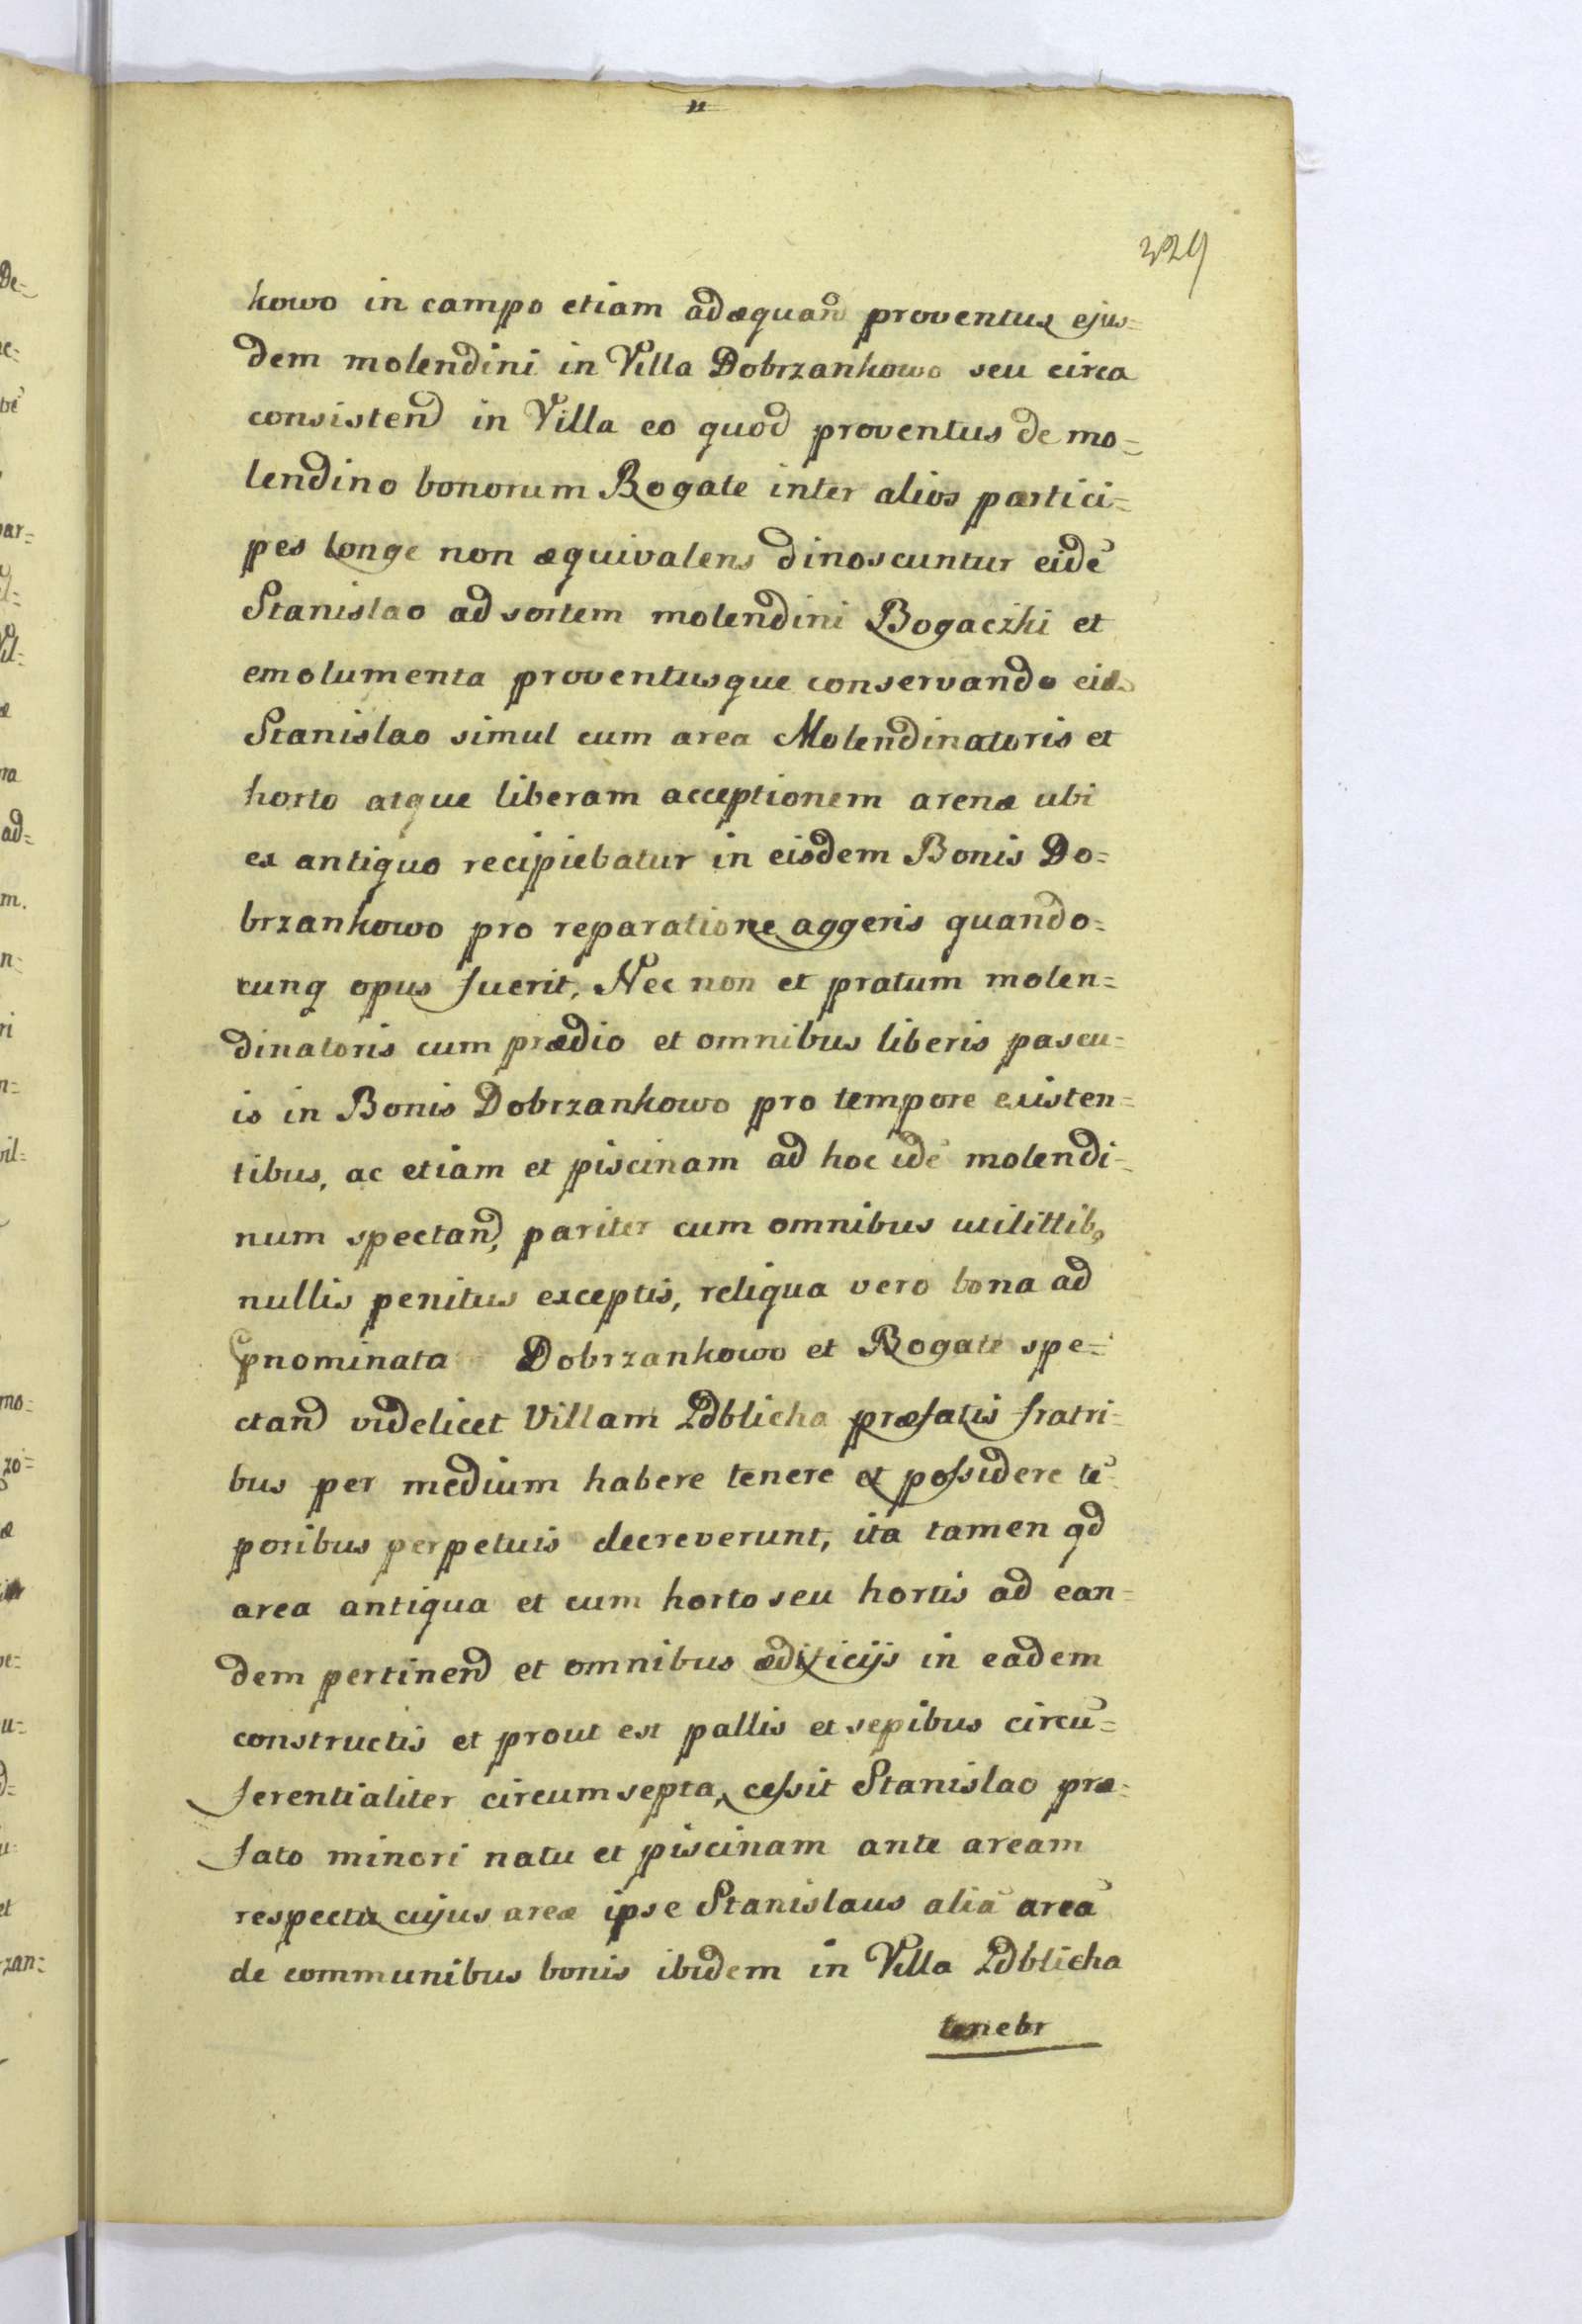 329
kowo in campo etiam adæquan proventus ejus=
dem molendini in Villa Dobrzankowo seu circa
consistend in Villa eo quod proventus de mo=
lendino bonorum Bogate inter alios partici=
pes longe non æquivalens dinoscuntur eidē
Stanislao ad sortem molendini Bogaczki et
emolumenta proventusque conservando eid
Stanislao simul cum area Molendinatoris et
horto atque liberam acceptionem arenæ ubi
ex antiquo recipiebatur in eisdem Bonis Do=
brzankowo pro reparatione aggeris quando=
cunq opus fuerit, Nec non et pratum molen=
dinatoris cum prædio et omnibus liberis pascu=
is in Bonis Dobrzankowo pro tempore existen=
tibus, ac etiam et piscinam ad hoc idē molendi=
num spectand, pariter cum omnibus utilittib9
nullis penitus exceptis, reliqua vero bona ad
pnominata Dobrzankowo et Bogate spe=
ctand videlicet Villam Pdblicha præfatis fratri=
bus per medium habere tenere et possidere tē
poribus perpetuis decreverunt, ita tamen qd
area antiqua et cum horto seu hortis ad ean=
dem pertinend et omnibus ædificijs in eadem
constructis et prout est pallis et sepibus circū=
ferentialiter circumsepta, cessit Stanislao præ=
fato minori natu et piscinam ante aream
respectu cujus areæ ipse Stanislaus aliā areā
de communibus bonis ibidem in Villa Pdblicha
tenebr